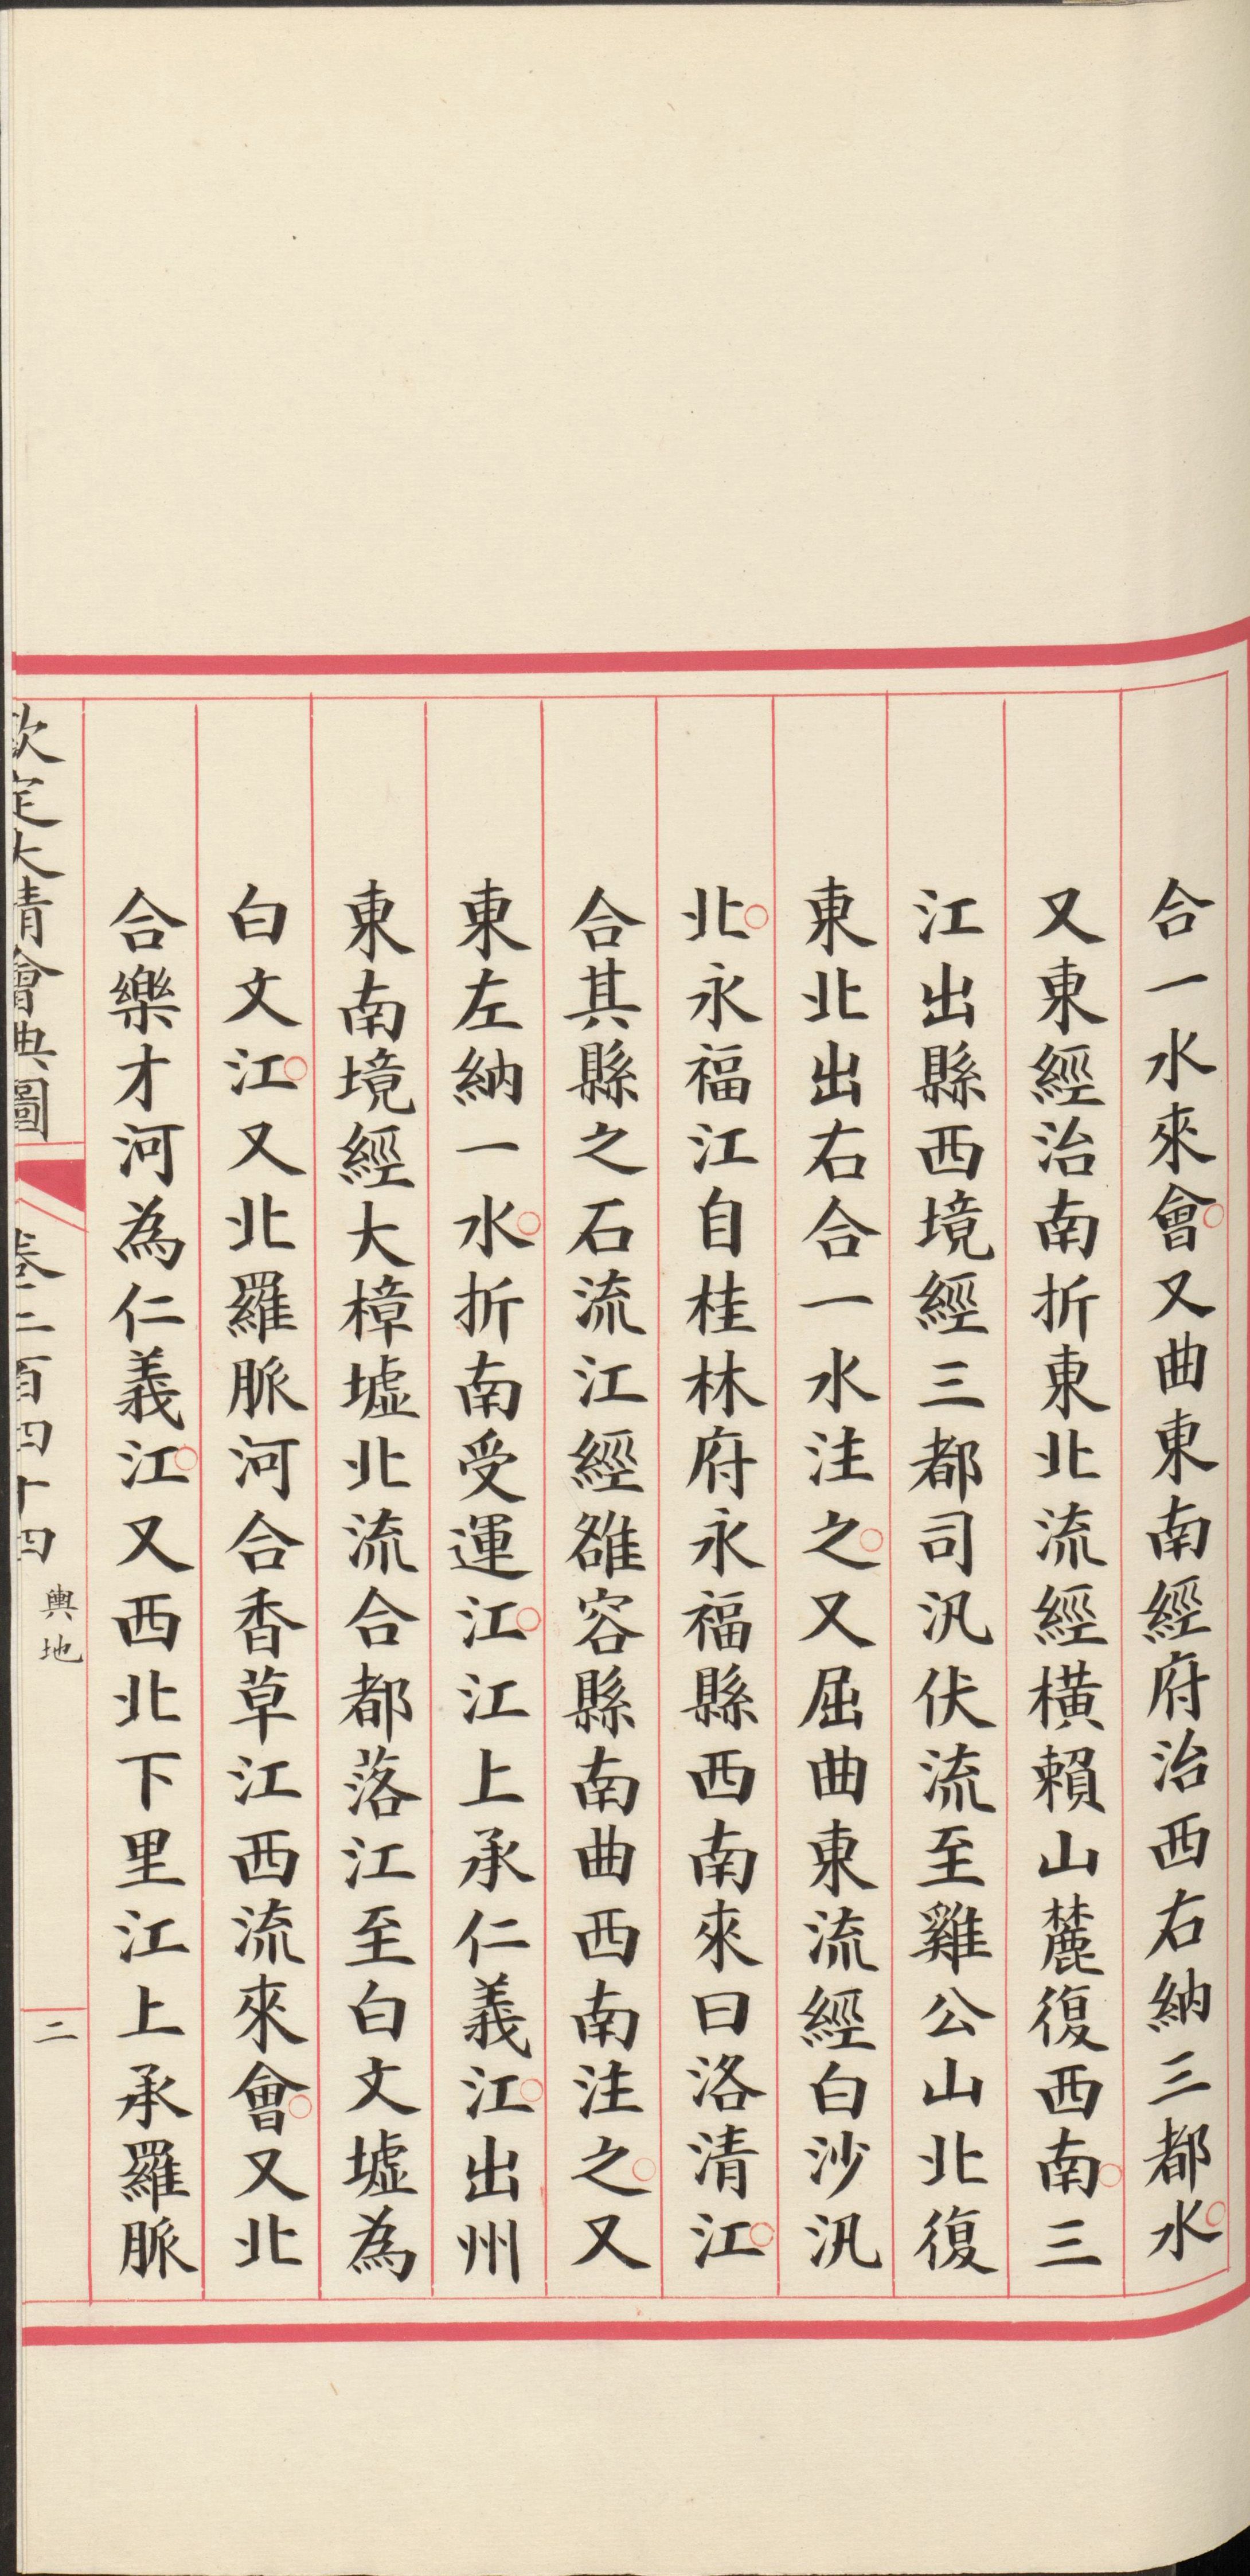 合一水來會又曲東南經府治西右納三都水
又東經治南折東北流經橫賴山麓復西南三
江出縣西境經三都司汛伏流至雞公山北復
東北出右合一水注之又屈曲東流經白沙汛
北永福江自桂林府永福縣西南來曰洛清江
合其縣之石流江經雒容縣南曲西南注之又
東左納一水折南受運江江上承仁義江出州
東南境經大樟墟北流合都落江至白文墟為
白文江又北羅脈河合香草江西流來會又北
合樂才河為仁義江又西北下里江上承羅脈
欽定大清會典圖 卷二百四十四 輿地 二